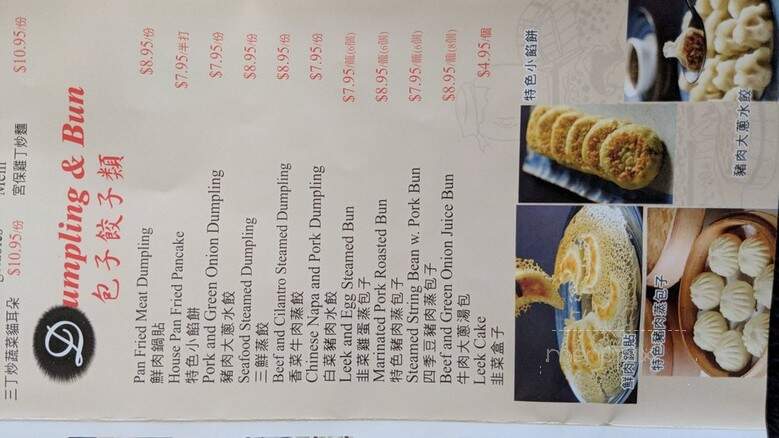 三丁炒蔬菜貓耳朵 $10.95/份 宮保雞丁炒麵 $10.95/份
Dumpling & Bun
包子餃子類
Pan Fried Meat Dumpling $8.95/份
鮮肉鍋貼
House Pan Fried Pancake $7.95/半打
特色小餡餅
Pork and Green Onion Dumpling $7.95/份
豬肉大蔥水餃
Seafood Steamed Dumpling $8.95/份
三鮮蒸餃
Beef and Cilantro Steamed Dumpling $8.95/份
香菜牛肉蒸餃
Chinese Napa and Pork Dumpling $7.95/份
白菜豬肉水餃
Leek and Egg Steamed Bun $7.95/籠(6個)
韭菜雞蛋蒸包子
Marinated Pork Roasted Bun $8.95/籠(6個)
特色豬肉蒸包子
Steamed String Bean w. Pork Bun $7.95/籠(6個)
四季豆豬肉蒸包子
Beef and Green Onion Juice Bun $8.95/籠(8個)
牛肉大蔥湯包
Leek Cake $4.95/個
韭菜盒子
特色小餡餅
豬肉大蔥水餃
鮮肉鍋貼
特色豬肉蒸包子